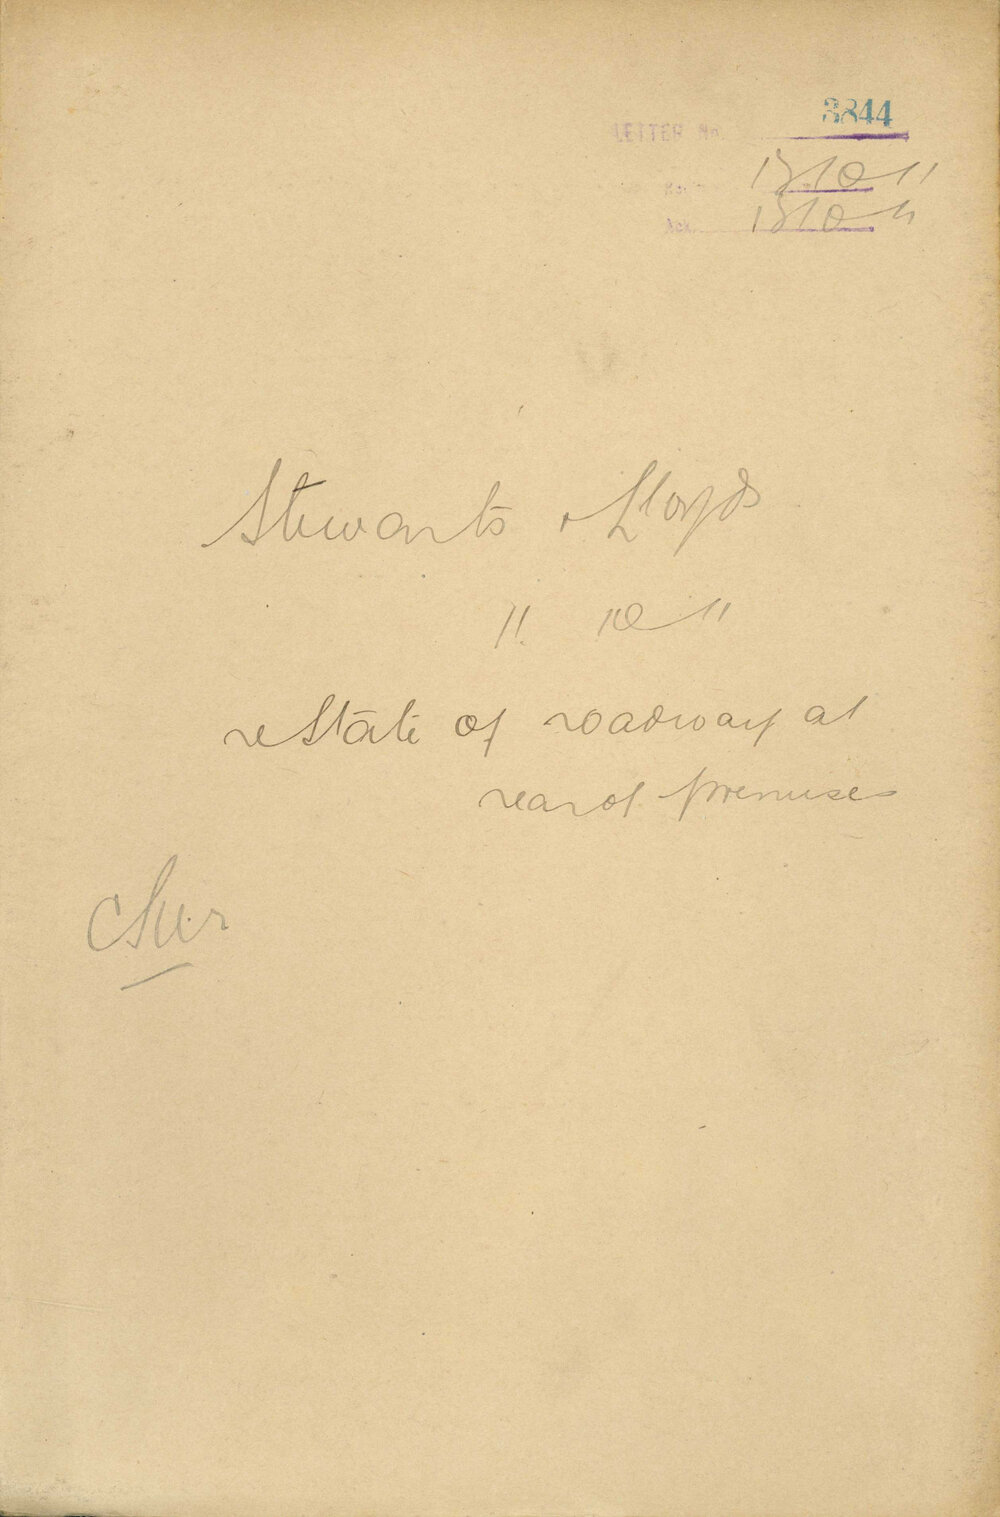 LETTER No. 3844
13/10/11
Ack. 13/10/11
Stewarts & Lloyds
11. 10. 11
re State of roadway at
rear of premises